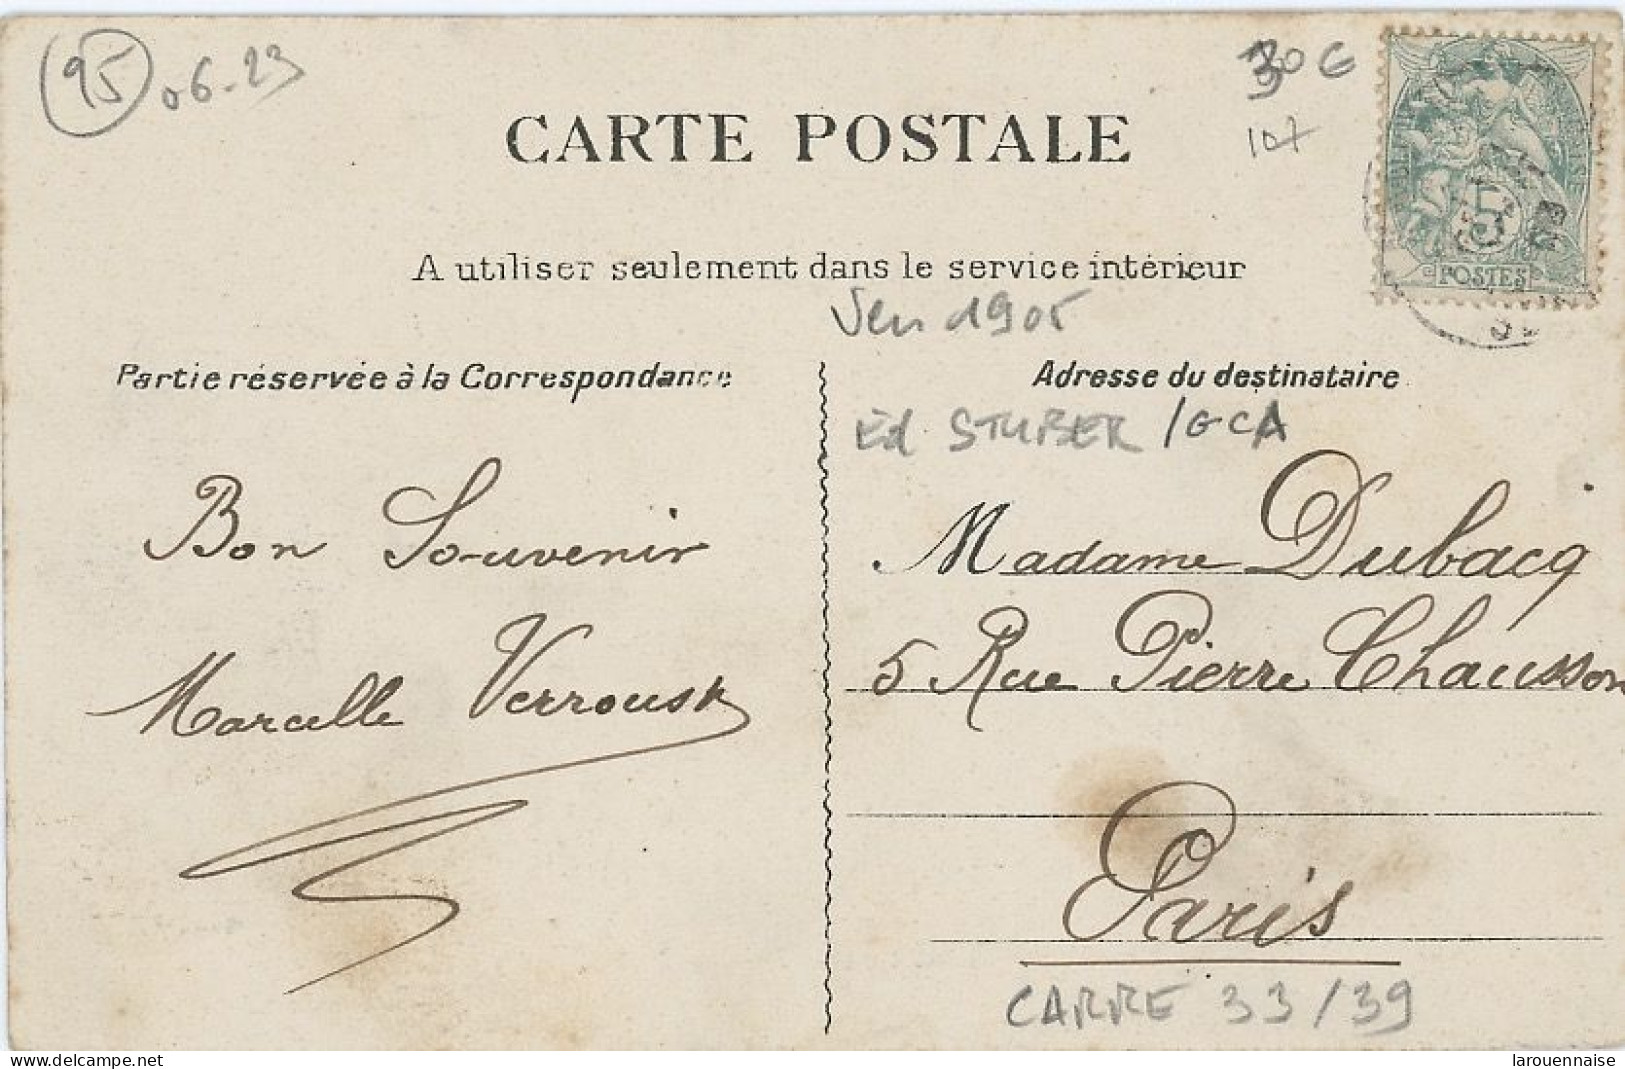 95 06-23
30 €
107
CARTE POSTALE
A utiliser seulement dans le service intérieur
1905
Partie réservée à la Correspondance
Adresse du destinataire
Ed STUBER /GCA
POSTES
5
Bon Souvenir
Marcelle Verrousk
Madame Dubacq
5 Rue Pierre Chausson
Paris
CARRE 33/39
delcampe.net
larouennaise